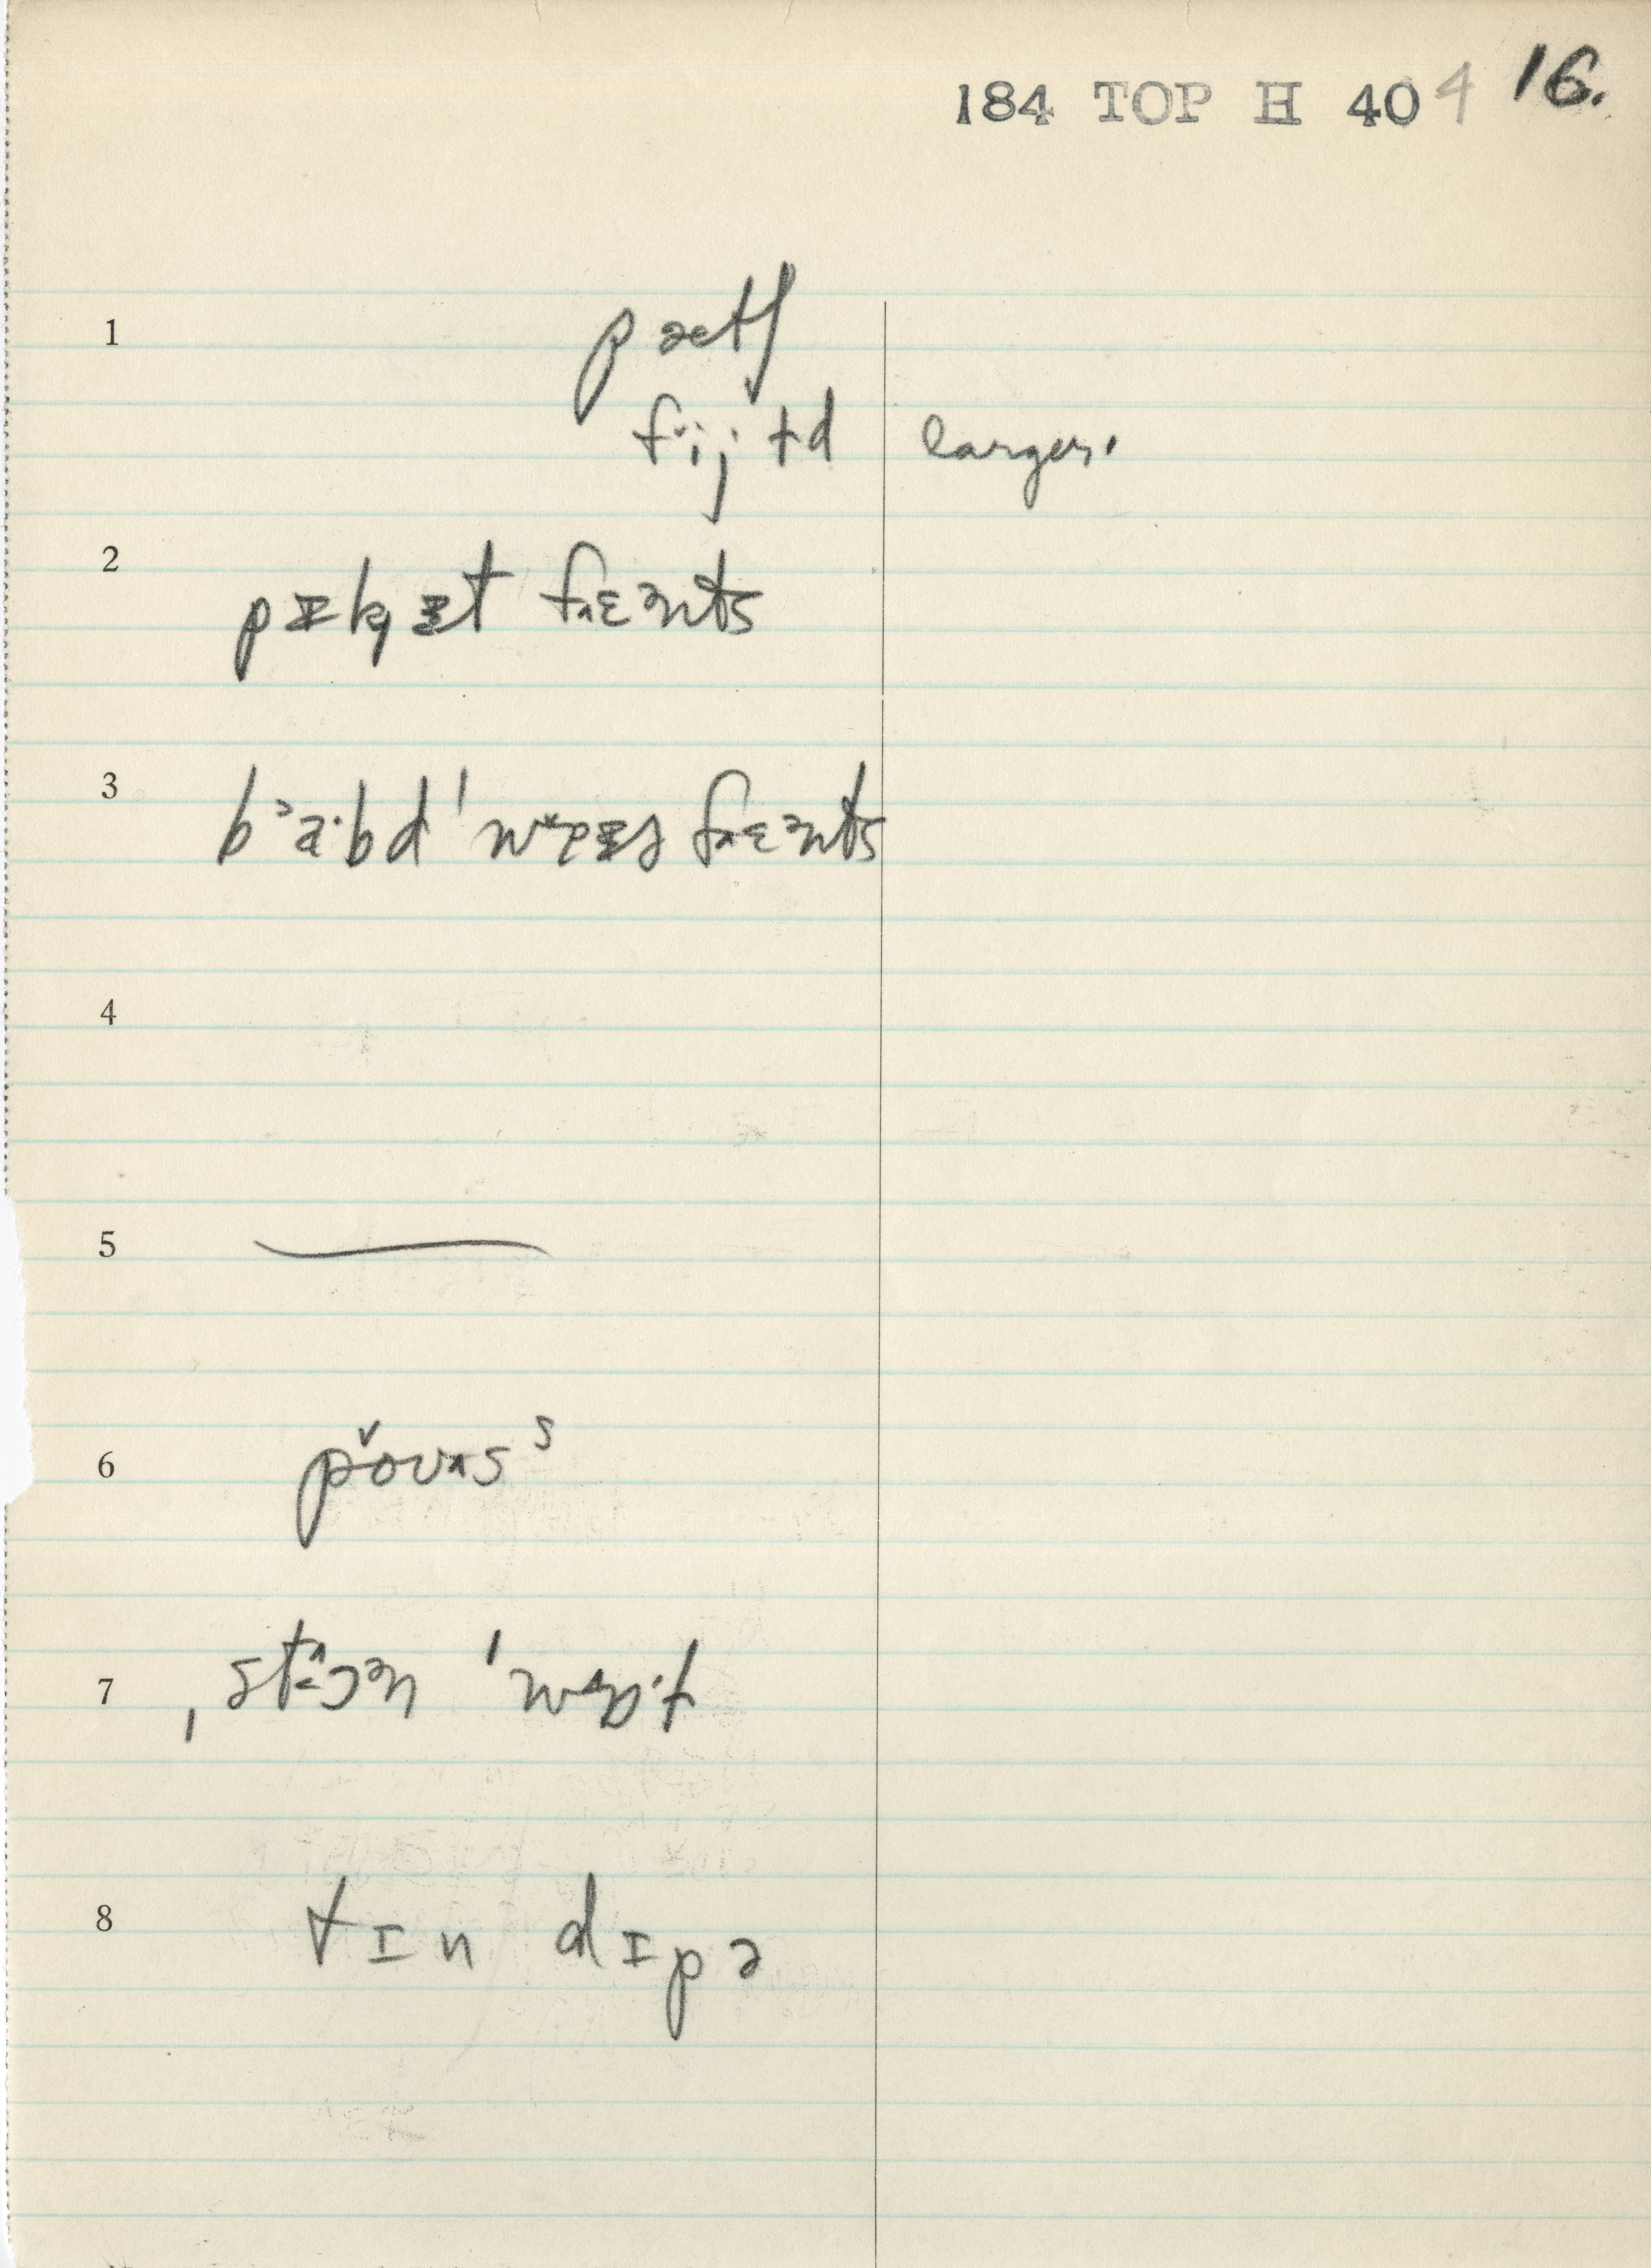 184 TOP H 404 16.
1 pætʃ
fˇijɨd larger.
2 pɪkɪt fɛənts
3 bˀa·bd ˈwɛəɪɚ fɛənts
4
5
6 pˇoʊʌsˢ
7 ˌstɔən
8 tɪn dɪpə